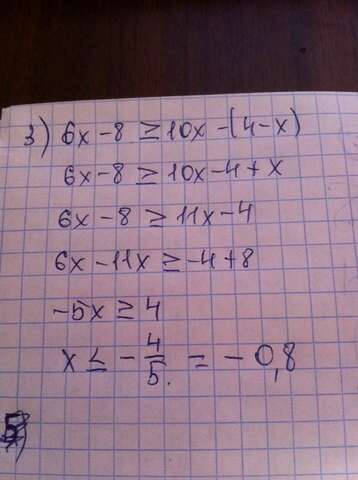 3) 6x - 8 ≥ 10x - (4 - x)
6x - 8 ≥ 10x - 4 + x
6x - 8 ≥ 11x - 4
6x - 11x ≥ -4 + 8
-5x ≥ 4
x ≤ - 4/5. = - 0,8